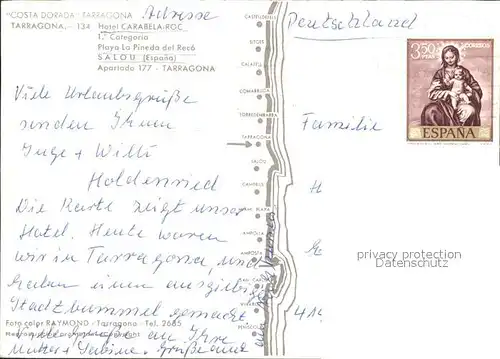 "COSTA DORADA" TARRAGONA
TARRAGONA.- 134
Adresse
Hotel CARABELA-ROC
1.ª Categoría
Playa La Pineda del Recó
SALOU (España)
Apartado 177 - TARRAGONA
Viele Urlaubsgrüße
senden Ihnen
Inge + Willi
Holdenried
Die Karte zeigt unser
Hotel. Heute waren
wir in Tarragona, und
haben einen ausgiebigen
Stadtbummel gemacht
an Ihre
Mutter + Sabine.
Foto color RAYMOND - Tarragona - Tel. 2685
CASTELLDEFELS
SITGES
CALAFELL
COMARRUGA
TORREDEMBARRA
TARRAGONA
SALOU
CAMBRILS
AMPOLLA
AMPOSTA
PEÑISCOLA
Deutschland
3,50 PTAS
CORREOS
ESPAÑA
Familie
privacy protection
Datenschutz